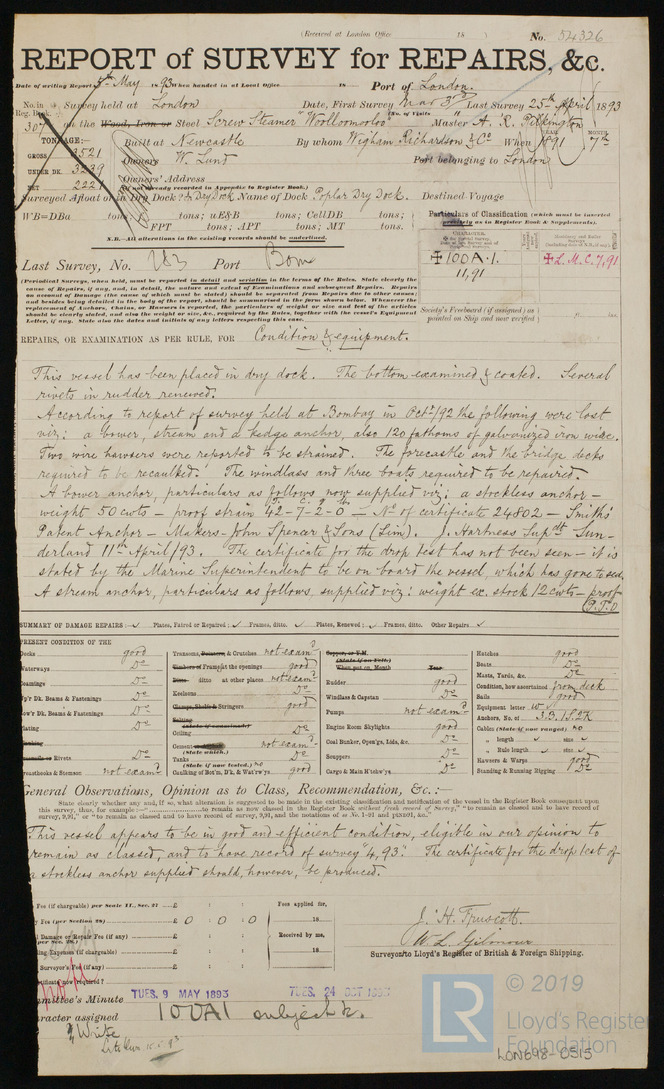 (Received at London Office 18 ) No. 54326
REPORT of SURVEY for REPAIRS, &c.
Date of writing Report 5th May 1893 When handed in at Local Office 18 Port of London.
No. in Reg. Book. Survey held at London Date, First Survey Mar 3rd Last Survey 25th April 1893
(No. of Visits )
307 on the Wood, Iron or Steel Screw Steamer "Woolloomooloo" Master A. R. Pilkington
TONNAGE:— Built at Newcastle By whom Wigham Richardson & Co When 1891 MONTH 7th
GROSS 3521 Owners W. Lund Port belonging to London
UNDER DK. 3239 Owners' Address
NET 2221 (If not already recorded in Appendix to Register Book.)
Surveyed Afloat or in Dry Dock? Dry Dock Name of Dock Poplar Dry Dock. Destined Voyage
WB=DBa tons; uE&B tons; CellDB tons;
FPT tons; APT tons; MT tons.
N.B.—All alterations in the existing records should be underlined.
Particulars of Classification (which must be inserted precisely as in Register Book & Supplements).
CHARACTER.
✠ 100A.1. ✠ L.M.C. 7,91
11,91
Last Survey, No. 183 Port Bom
(Periodical Surveys, when held, must be reported in detail and seriatim in the terms of the Rules. State clearly the
cause of Repairs, if any, and, in detail, the nature and extent of Examinations and subsequent Repairs. Repairs
on account of Damage (the cause of which must be stated) should be separated from Repairs due to other causes;
and besides being detailed in the body of the report, should be summarised in the form shown below. Whenever the
replacement of Anchors, Chains, or Hawsers is reported, the particulars of weight or size and test of the articles
should be clearly stated, and also the weight or size, &c., required by the Rules, together with the vessel's Equipment
Letter, if any. State also the dates and initials of any letters respecting this case.
Society's Freeboard (if assigned) as
painted on Ship and now verified
REPAIRS, OR EXAMINATION AS PER RULE, FOR Condition & equipment.
This vessel has been placed in dry dock. The bottom examined & coated. Several
rivets in rudder renewed.
According to report of survey held at Bombay in Octr/92 the following were lost
viz: a bower, stream and a kedge anchor, also 120 fathoms of galvanized iron wire.
Two wire hawsers were reported to be strained. The forecastle and the bridge decks
required to be recaulked. The windlass and three boats required to be repaired.
A bower anchor, particulars as follows now supplied viz: a stockless anchor —
weight 50 cwts — proof strain 42-7-2-0 — No of certificate 24802 — Smith's
Patent Anchor — Makers - John Spencer & Sons (Lim). J. Hartness Supdt - Sun-
derland 11th April/93. The certificate for the drop test has not been seen — it is
stated by the Marine Superintendent to be on board the vessel, which has gone to sea.
A stream anchor, particulars as follows, supplied viz: weight ex. stock 12 cwts — proof
P.T.O
SUMMARY OF DAMAGE REPAIRS: ✓ Plates, Faired or Repaired; ✓ Frames, ditto. ✓ Plates, Renewed; ✓ Frames, ditto. Other Repairs ✓
PRESENT CONDITION OF THE
Decks good
Waterways Do
Beamings Do
Up'r Dk. Beams & Fastenings Do
Low'r Dk. Beams & Fastenings Do
Plating Do
Caulking
Treenails or Rivets Do
Breasthooks & Stemson not exam?
Transoms, Pointers, & Crutches not exam?
Timbers of Frame, at the openings good
Ditto ditto at other places not exam?
Keelsons Do
Clamps, Shelfs & Stringers good
Salting
(State if examined.)
Ceiling Do
Cement not exam?
(State which.)
Tanks Do
(State if now tested.) No
Caulking of Bot'm, D'k, & Wat'rw'ys good
Copper, or Y.M.
(State if on Felt)
When put on, Month Year
Rudder good
Windlass & Capstan Do
Pumps not exam?
Engine Room Skylights good
Coal Bunker, Open'gs, Lids, &c. Do
Scuppers Do
Cargo & Main H'tchw'ys Do
Hatches good
Boats Do
Masts, Yards, &c. Do
Condition, how ascertained from deck
Sails good
Equipment letter w
Anchors, No. of 3B. 1S. 2K
Cables (State if now ranged) No
„ length ✓ size ✓
„ Rule length ✓ size ✓
Hawsers & Warps good
Standing & Running Rigging Do
General Observations, Opinion as to Class, Recommendation, &c.:—
State clearly whether any and, if so, what alteration is suggested to be made in the existing classification and notification of the vessel in the Register Book consequent upon
This vessel appears to be in good and efficient condition, eligible in our opinion to
remain as classed, and to have record of survey "4,93". The certificate for the drop test of
a stockless anchor supplied should, however, be produced.
Fee (if chargeable) per Scale II., Sec. 21 £ : : Fees applied for,
Fee (per Section 28) £ 0 : 0 : 0 18
Damage or Repair Fee (if any) £ : : Received by me,
(per Sec. 28.)
Travelling Expenses (if chargeable) £ : : 18
Surveyor's Fee (if any) £ : :
Certificate now required?
J. H. Truscott.
W. L. Gilmour
Surveyors to Lloyd's Register of British & Foreign Shipping.
Committee's Minute TUES. 9 MAY 1893 TUES. 24 OCT 1893
Character assigned 100A1 subject &c.
Write
LR © 2019
Lloyd's Register
Foundation
LON698-0515